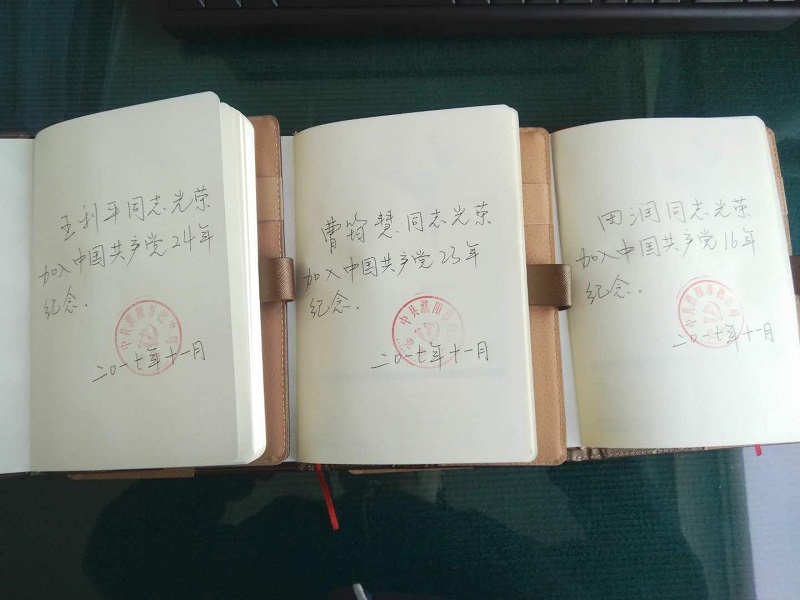 王利平同志光荣
加入中国共产党24年
纪念.
二〇一七年十一月
曹筠慧同志光荣
加入中国共产党23年
纪念.
二〇一七年十一月
田润同志光荣
加入中国共产党16年
纪念.
二〇一七年十一月